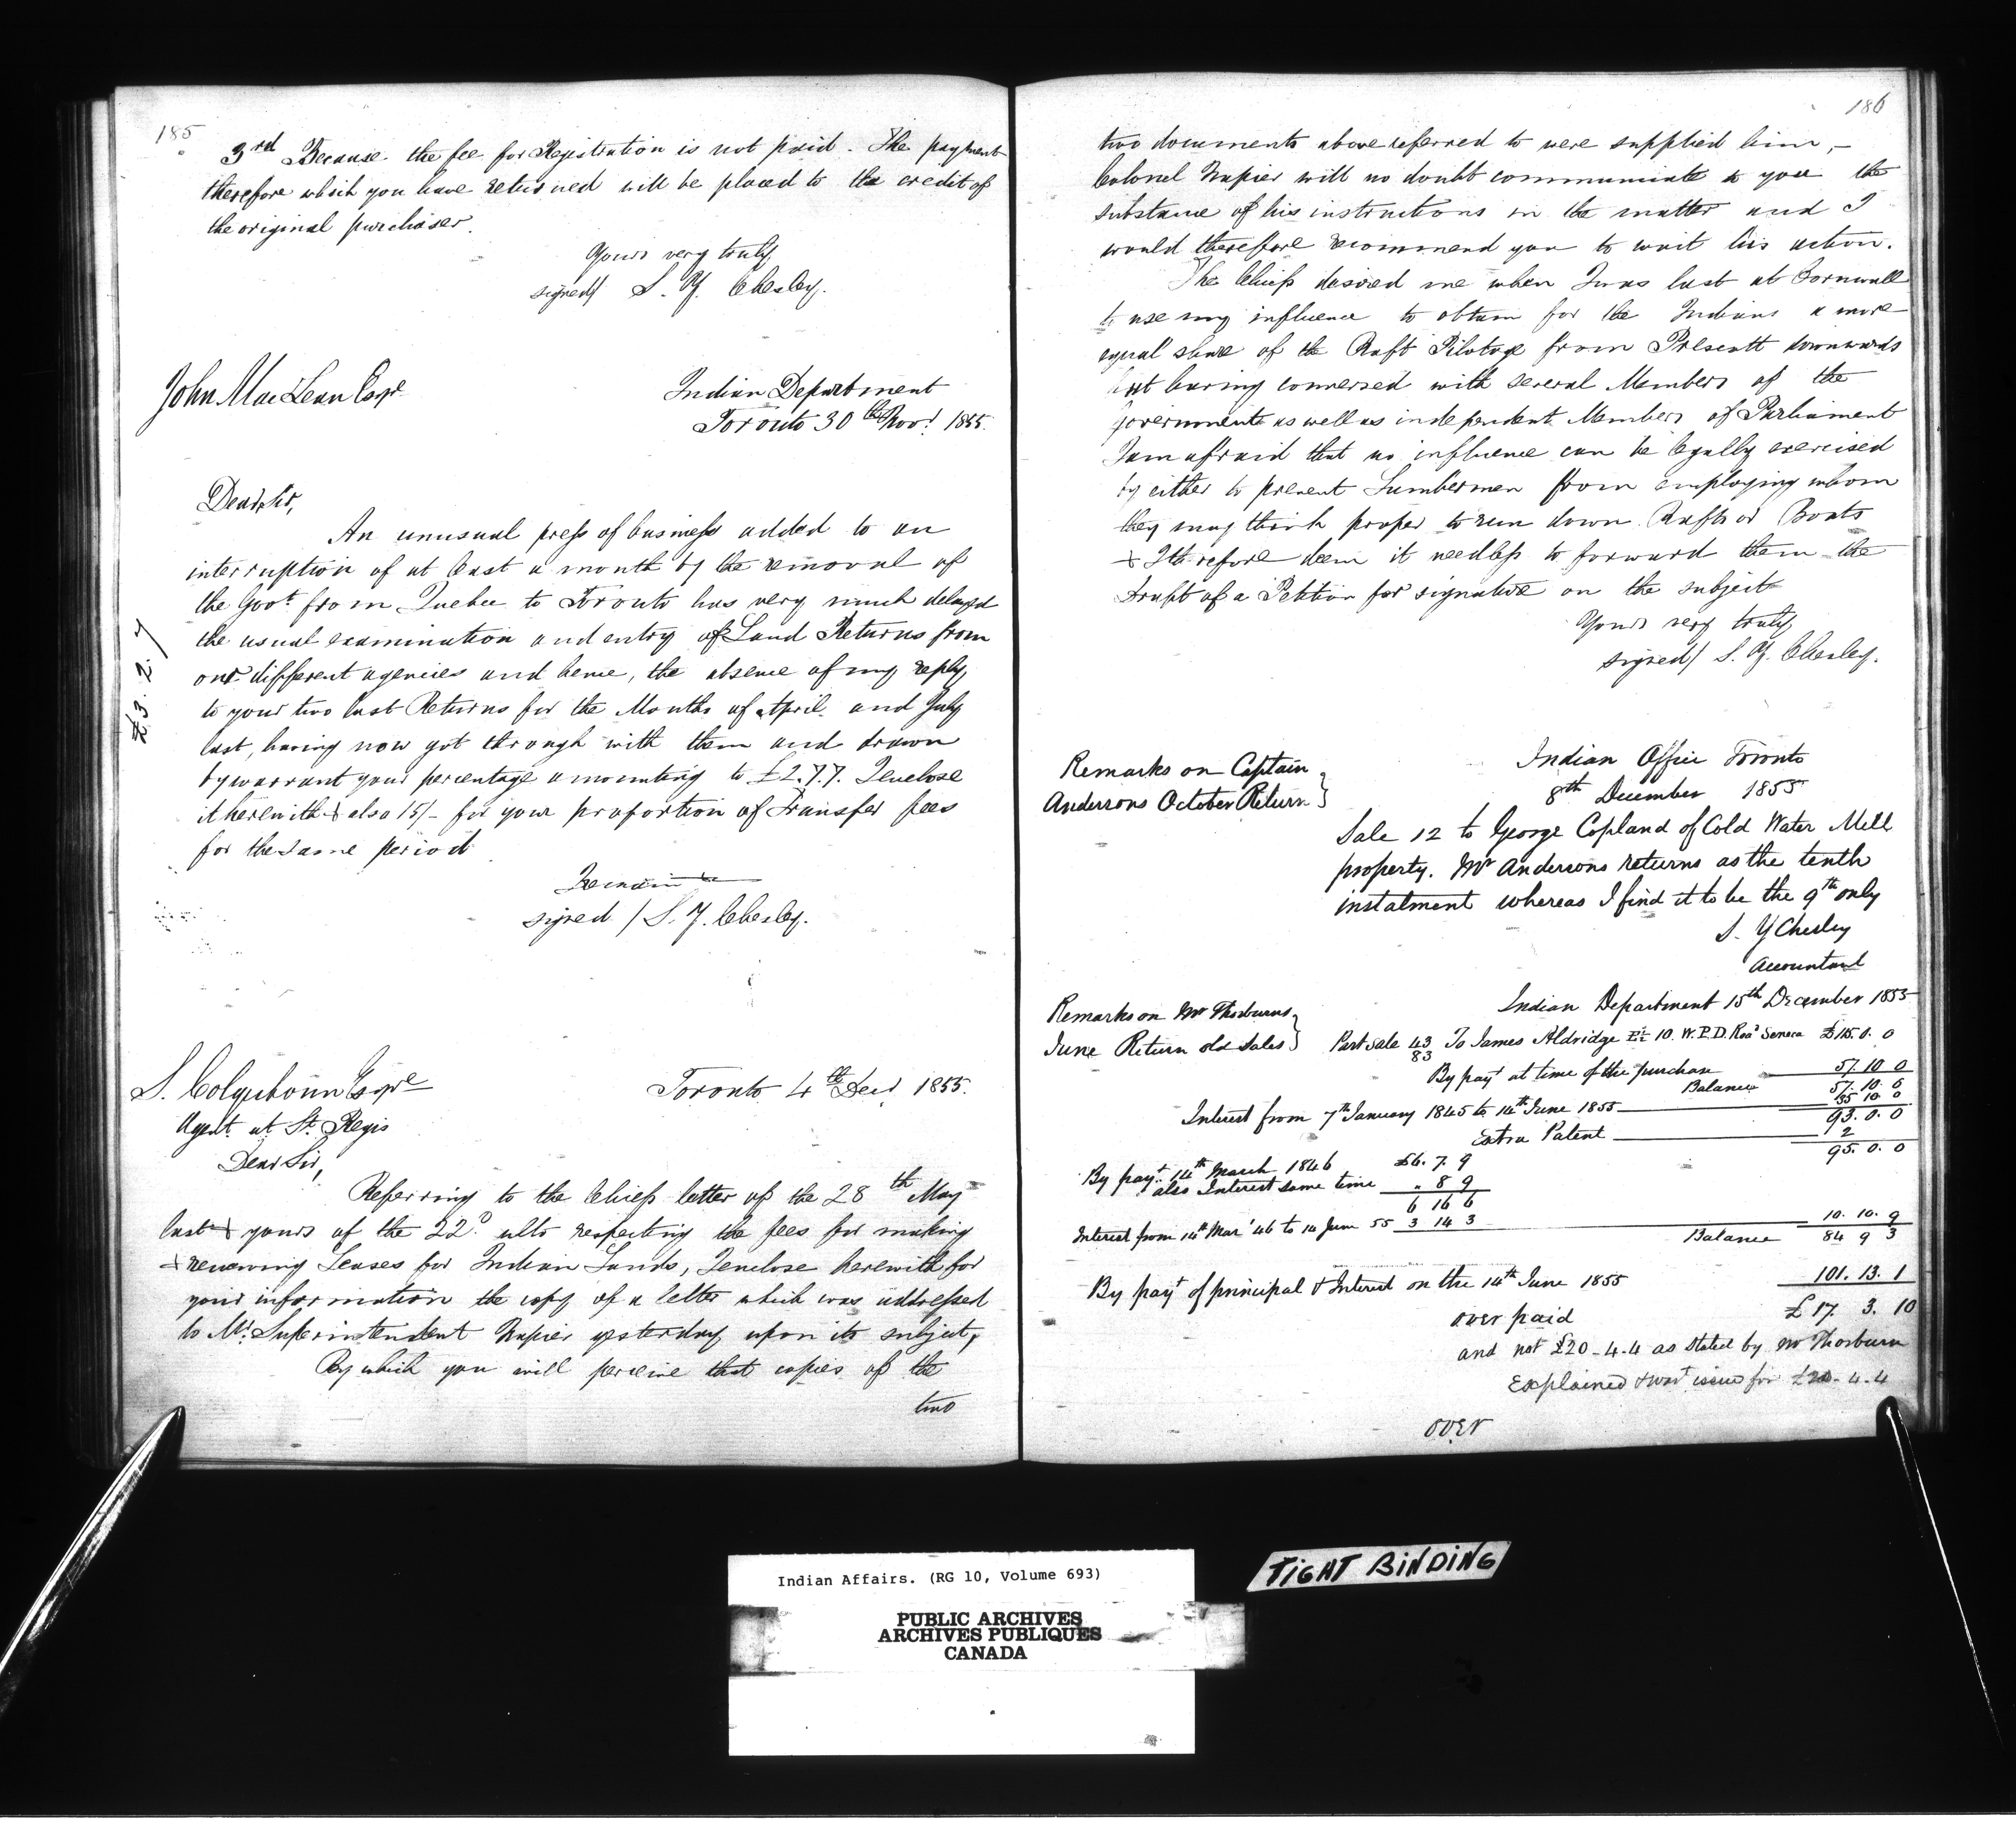 185
3rd Because the fee for Registration is not paid. The payment
therefore which you have returned will be placed to the credit of
the original purchaser.
Yours very truly
signed/ S. Y. Chesley.
John MacLean Esqr
Indian Department
Toronto 30th Novr. 1855.
Dear Sir,
An unusual press of business added to an
interruption of at least a month by the removal of
the Govt. from Quebec to Toronto has very much delayed
the usual examination and entry of Land Returns from
our different agencies and hence, the absence of my reply
to your two last Returns for the Months of April and July
last, having now got through with them and drawn
by warrant your percentage amounting to £2.7.7. I enclose
it herewith & also 15/- for your proportion of Transfer fees
for the same period
£3.2.7
I remain &c
signed / S. Y. Chesley.
S. Colquhoun Esqre
Agent at St. Regis
Toronto 4th Decr 1855.
Dear Sir,
Referring to the Chiefs letter of the 28th May
last & yours of the 22d. ulto respecting the fees for making
& renewing Leases for Indian Lands, I enclose herewith for
your information the copy of a letter which was addressed
to Mr. Superintendent Napier yesterday upon its subject,
By which you will perceive that copies of the
two
186
two documents above referred to were supplied him,-
Colonel Napier will no doubt communicate to you the
substance of his instructions in the matter and I
would therefore recommend you to wait his action.
The Chiefs desired me when I was last at Cornwall
to use my influence to obtain for the Indians a more
equal share of the Raft Pilotage from Prescott downwards
but having conversed with several Members of the
Government as well as independent Members of Parliament
I am afraid that no influence can be legally exercised
by either to prevent Lumbermen from employing whom
they may think proper to run down Rafts or Boats
& I therefore deem it needless to forward them the
Draft of a Petition for signature on the subject
Yours very truly
signed/ S. Y. Chesley.
Remarks on Captain
Andersons October Return
Indian Office Toronto
8th December 1855
Sale 12 to George Copland of Cold Water Mill
property. Mr Andersons returns as the tenth
instalment whereas I find it to be the 9th only
S. Y Chesley
Accountant
Remarks on Mr Thorburns
June Return old Sales
Indian Department 15th December 1855
Part Sale 43 To James Aldridge 10. W.P.D. Roa Seneca £115. 0. 0
83
By payt at time of the purchase 57. 10 0
Balance 57. 10. 0
Interest from 7th January 1845 to 14th June 1855 35 10 0
93. 0. 0
Extra Patent 2
95. 0. 0
By payt. 14th March 1846 £6. 7. 9
also Interest same time " 8 9
6 16 6
Interest from 14th Mar '46 to 14 June 55 3 14 3 10. 10. 9
Balance 84 9 3
By payt of principal & Interest on the 14th June 1855 101. 13. 1
over paid £17 3. 10
and not £20-4-4 as stated by Mr Thorburn
Explained & wart issue for £20-4-4
over
Indian Affairs. (RG 10, Volume 693)
PUBLIC ARCHIVES
ARCHIVES PUBLIQUES
CANADA
TIGHT BINDING